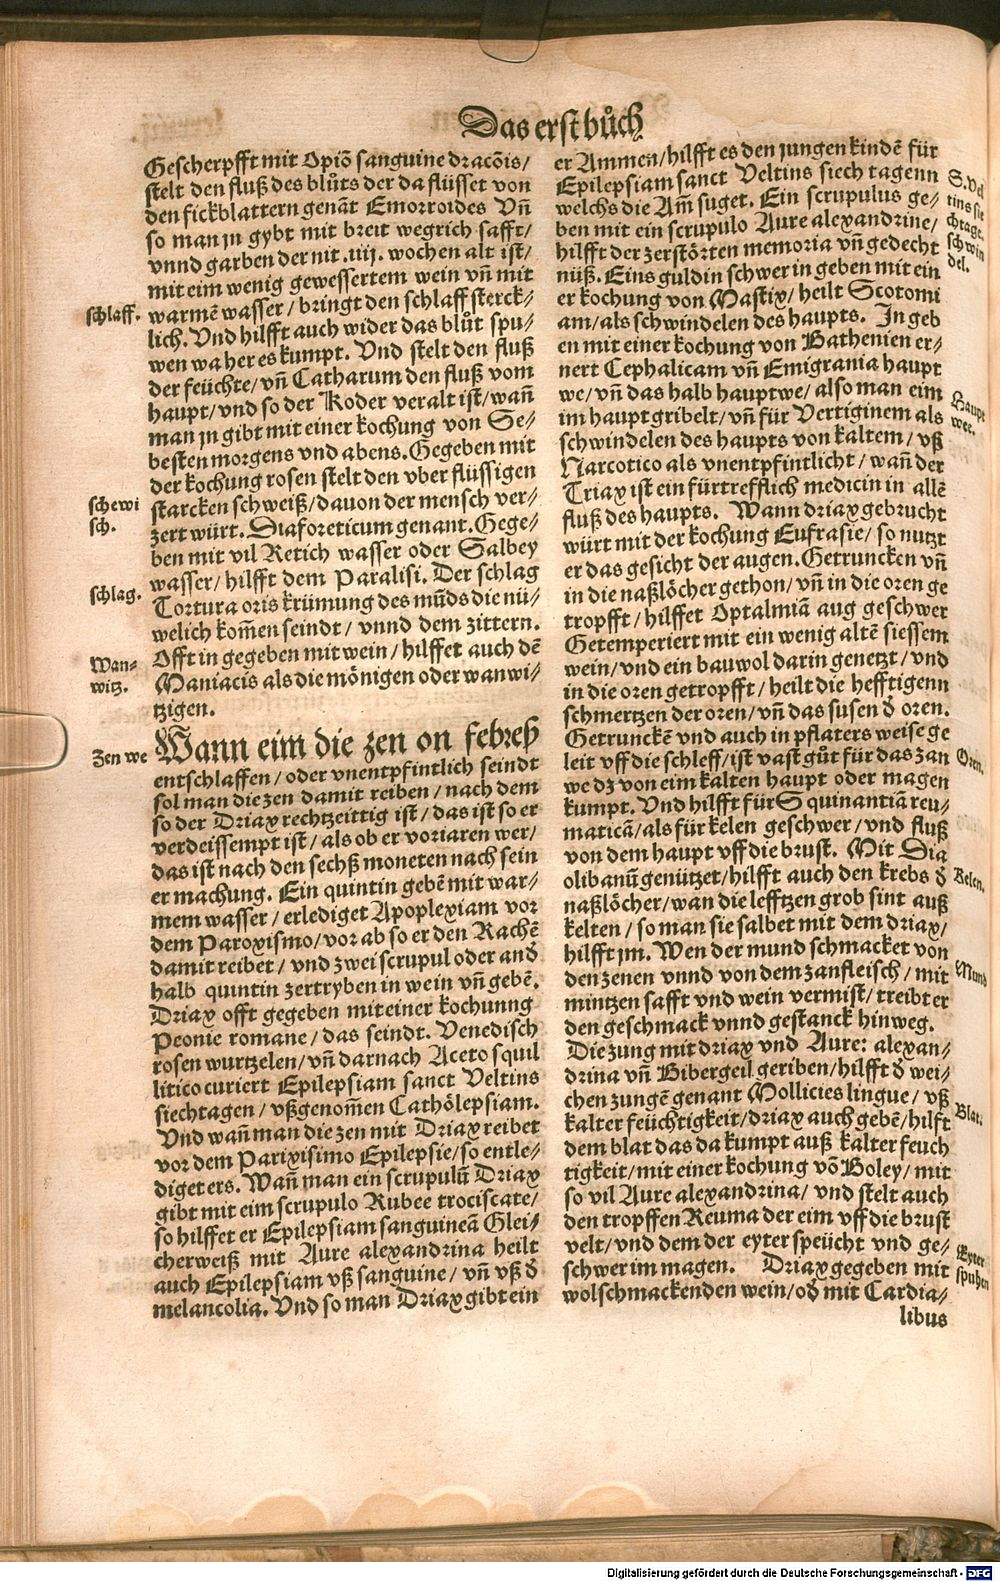 Das erst bůch
Gescherpfft mit Opiō sanguine dracōis/
stelt den fluß des blůts der da flüsset von
den fickblattern genāt Emorroides Vñ
so man jn gybt mit breit wegrich safft/
vnnd garben der nit .iiij. wochen alt ist/
mit eim wenig gewessertem wein vñ mit
schlaff.
warmē wasser/ bringt den schlaff sterck⸗
lich. Vnd hilfft auch wider das blůt spu⸗
wen wa her es kumpt. Vnd stelt den fluß
der feüchte/ vñ Catharum den fluß vom
haupt/ vnd so der Koder veralt ist/ wañ
man jn gibt mit einer kochung von Se⸗
besten morgens vnd abens. Gegeben mit
der kochung rosen stelt den vber flüssigen
schewi
sch.
starcken schweiß/ dauon der mensch ver⸗
zert würt. Diaforeticum genant. Gege⸗
ben mit vil Retich wasser oder Salbey
wasser/ hilfft dem Paralisi. Der schlag
schlag.
Tortura oris krümung des mūds die nü⸗
welich kom̄en seindt/ vnnd dem zittern.
Offt in gegeben mit wein/ hilffet auch dē
Wan⸗
witz.
Maniacis als die mönigen oder wanwi⸗
tzigen.
Zen we
Wann eim die zen on febreß
entschlaffen/ oder vnentpfintlich seindt
sol man die zen damit reiben/ nach dem
so der Driax rechtzeittig ist/ das ist so er
verdeissempt ist/ als ob er voriaren wer/
das ist nach den sechß moneten nach sein
er machung. Ein quintin gebē mit war⸗
mem wasser/ erlediget Apoplexiam vor
dem Paroxismo/ vor ab so er den Rachē
damit reibet/ vnd zwei scrupul oder and̄
halb quintin zertryben in wein vñ gebē.
Driax offt gegeben mit einer kochunng
Peonie romane/ das seindt. Venedisch
rosen wurtzelen/ vñ darnach Aceto squil
litico curiert Epilepsiam sanct Veltins
siechtagen/ vßgenom̄en Cathölepsiam.
Vnd wañ man die zen mit Driax reibet
vor dem Parixisimo Epilepsie/ so entle⸗
diget ers. Wañ man ein scrupulū Driax
gibt mit eim scrupulo Rubee trociscate/
so hilffet er Epilepsiam sanguineā Glei⸗
cherweiß mit Aure alexandrina heilt
auch Epilepsiam vß sanguine/ vñ vß d̄
melancolia. Vnd so man Driax gibt ein
er Ammen/ hilfft es den jungen kindē für
Epilepsiam sanct Veltins siech tagenn
welchs die Am̄ suget. Ein scrupulus ge⸗
ben mit ein scrupulo Aure alexandrine/
hilfft der zerstörten memoria vñ gedecht
nüß. Eins guldin schwer in geben mit ein
S. Vel
tins sie
chtage.
schwin
del.
er kochung von Mastix/ heilt Scotomi
am/ als schwindelen des haupts. In geb
en mit einer kochung von Bathenien er⸗
nert Cephalicam vñ Emigrania haupt
we/ vñ das halb hauptwe/ also man eim
im haupt gribelt/ vñ für Vertiginem als
Haupt
wee.
schwindelen des haupts von kaltem/ vß
Narcotico als vnentpfintlicht/ wañ der
Triax ist ein fürtrefflich medicin in allē
fluß des haupts. Wann driax gebrucht
würt mit der kochung Eufrasie/ so nutzt
er das gesicht der augen. Getruncken vñ
in die naßlöcher gethon/ vñ in die oren ge
tropfft/ hilffet Optalmiā aug geschwer
Getemperiert mit ein wenig altē siessem
wein/ vnd ein bauwol darin genetzt/ vnd
in die oren getropfft/ heilt die hefftigenn
schmertzen der oren/ vñ das susen d̄ oren.
Oren.
Getrunckē vnd auch in pflaters weise ge
leit vff die schleff/ ist vast gůt für das zan
we dz von eim kalten haupt oder magen
kumpt. Vnd hilfft für Squinantiā reu⸗
maticā/ als für kelen geschwer/ vnd fluß
von dem haupt vff die brust. Mit Dia
Kelen.
olibanū genützet/ hilfft auch den krebs d̄
naßlöcher/ wan die lefftzen grob sint auß
kelten/ so man sie salbet mit dem driax/
hilfft jm. Wen der mund schmacket von
Mund
den zenen vnnd von dem zanfleisch/ mit
mintzen safft vnd wein vermist/ treibt er
den geschmack vnnd gestanck hinweg.
Die zung mit driax vnd Aure: alexan⸗
drina vñ Bibergeil geriben/ hilfft d̄ wei⸗
chen zungē genant Mollicies lingue/ vß
Blat.
kalter feüchtigkeit/ driax auch gebē/ hilft
dem blat das da kumpt auß kalter feuch
tigkeit/ mit einer kochung vō Boley/ mit
so vil Aure alexandrina/ vnd stelt auch
den tropffen Reuma der eim vff die brust
velt/ vnd dem der eyter speücht vnd ge⸗
Eyter
spuhen
schwer im magen. Driax gegeben mit
wolschmackenden wein/ od̄ mit Cardia⸗
libus
Digitalisierung gefördert durch die Deutsche Forschungsgemeinschaft - DFG